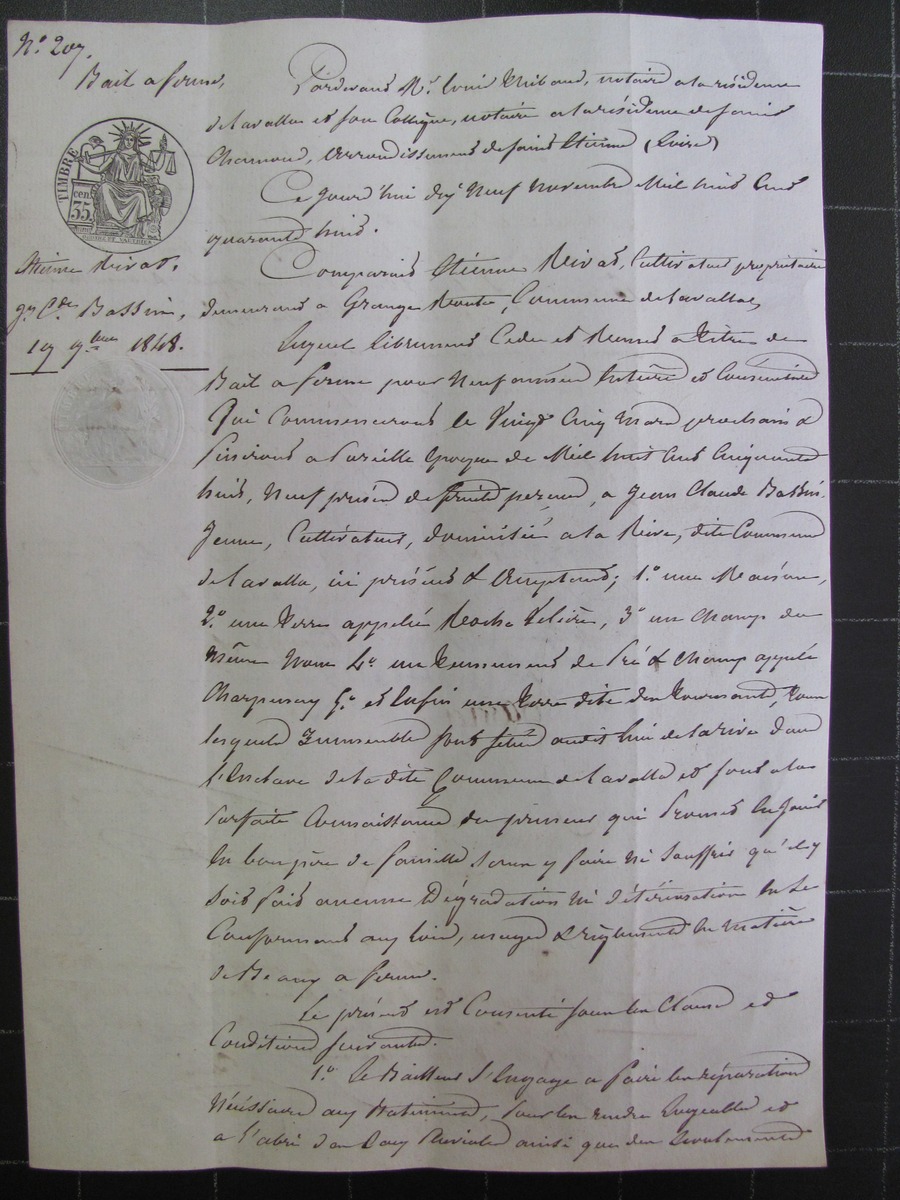 N.° 207.
Bail a ferme,
TIMBRE
cen. 35
Etienne Rivat.
Jn Cde Bassin,
19 9bre 1848.
Pardevant Me Louis Thibaud, notaire a la résidence
de Lavalla et son Collègue, notaire a la résidence de saint
Chamond, arrondissement de saint Etienne (Loire)
Ce jourd'hui dix Neuf Novembre Mil huit Cent
quarante huit.
Comparait Etienne Rivat, Cultivateur propriétaire
demeurant a Grange Rouh, Commune de Lavalla,
Lequel librement Cede et Remet a titre de
Bail a ferme pour Neuf années Entière et Consécutive
Qui Commenceront le Vingt Cinq Mars prochain &
finiront a Pareille Epoque de Mil huit Cent Cinquante
huit, Neuf prises de fruits perçus, a Jean Claude Bassin
Jeune, Cultivateur, domicilié a la Rive, dite Commune
de Lavalla, ici présent & acceptant; 1.° une Maison,
2.° une terre appelée Roche, 3° un Champ du
Même Nom 4.° un tennement de Pré & Champ appelé
Charpenay 5.° et Enfin une terre dite des, tous
lesquels Immeubles sont situés audit lieu de la rive dans
l'Enclave de la dite Commune de Lavalla et sont a la
Parfaite Connaissance du preneur qui Promet En Jouir
En bon père de famille sans y faire Ni Souffrir qu'il y
soit fait aucune Dégradation Ni détérioration En Se
Conformant aux lois, usages & règlements En Matière
de Beaux a ferme.
Le présent est Consenti sous les Clauses et
Conditions suivantes.
1.° Le Bailleur s'Engage a faire les réparations
Nécéssaire aux Batiments, Pour les rendre Logeables et
a l'abri des Eaux Pluviales ainsi que des